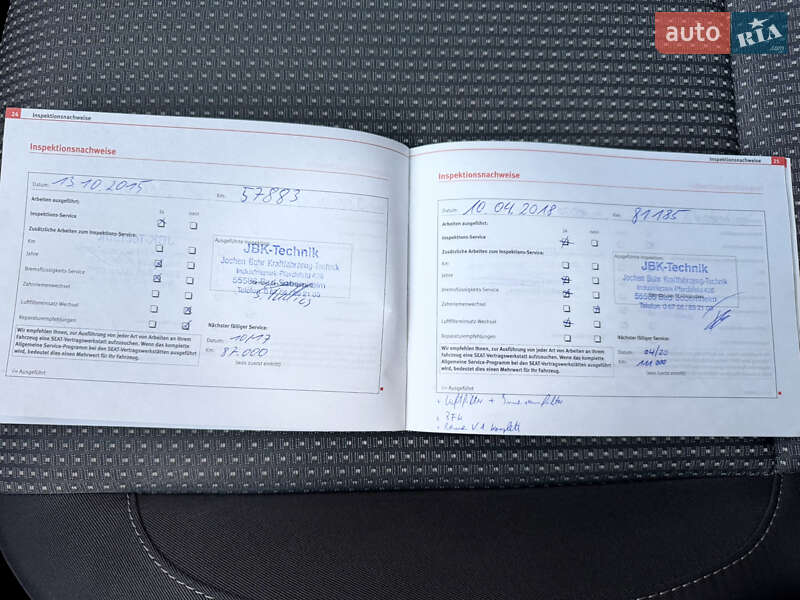 auto RIA.com
24 Inspektionsnachweise
Inspektionsnachweise
Datum: 13.10.2015 Km: 57883
Arbeiten ausgeführt:
ja nein
Inspektions-Service
Zusätzliche Arbeiten zum Inspektions-Service:
Km
Jahre
Bremsflüssigkeits-Service
Zahnriemenwechsel
Luftfiltereinsatz-Wechsel
Reparaturempfehlungen
Ausgeführte Inspektion:
JBK-Technik
Jochen Buhr Kraftfahrzeug-Technik
Industriepark Pferdsfeld
55566 Bad Sobernheim
Nächster fälliger Service:
Datum: 10/17
Km: 87.000
(was zuerst eintritt)
Wir empfehlen Ihnen, zur Ausführung von jeder Art von Arbeiten an Ihrem
Fahrzeug eine SEAT-Vertragswerkstatt aufzusuchen. Wenn das komplette
Allgemeine Service-Programm bei den SEAT-Vertragswerkstätten ausgeführt
wird, bedeutet dies einen Mehrwert für Ihr Fahrzeug.
Ausgeführt
Inspektionsnachweise 25
Inspektionsnachweise
Datum: 10.04.2018 Km: 81185
Arbeiten ausgeführt:
ja nein
Inspektions-Service
Zusätzliche Arbeiten zum Inspektions-Service:
Km
Jahre
Bremsflüssigkeits-Service
Zahnriemenwechsel
Luftfiltereinsatz-Wechsel
Reparaturempfehlungen
JBK-Technik
Jochen Buhr Kraftfahrzeug-Technik
Industriepark Pferdsfeld
55566 Bad Sobernheim
Nächster fälliger Service:
Datum: 04/20
Km: 111 000
(was zuerst eintritt)
Wir empfehlen Ihnen, zur Ausführung von jeder Art von Arbeiten an Ihrem
Fahrzeug eine SEAT-Vertragswerkstatt aufzusuchen. Wenn das komplette
Allgemeine Service-Programm bei den SEAT-Vertragswerkstätten ausgeführt
wird, bedeutet dies einen Mehrwert für Ihr Fahrzeug.
Ausgeführt
Luftfilter + Innenraumfilter
komplett